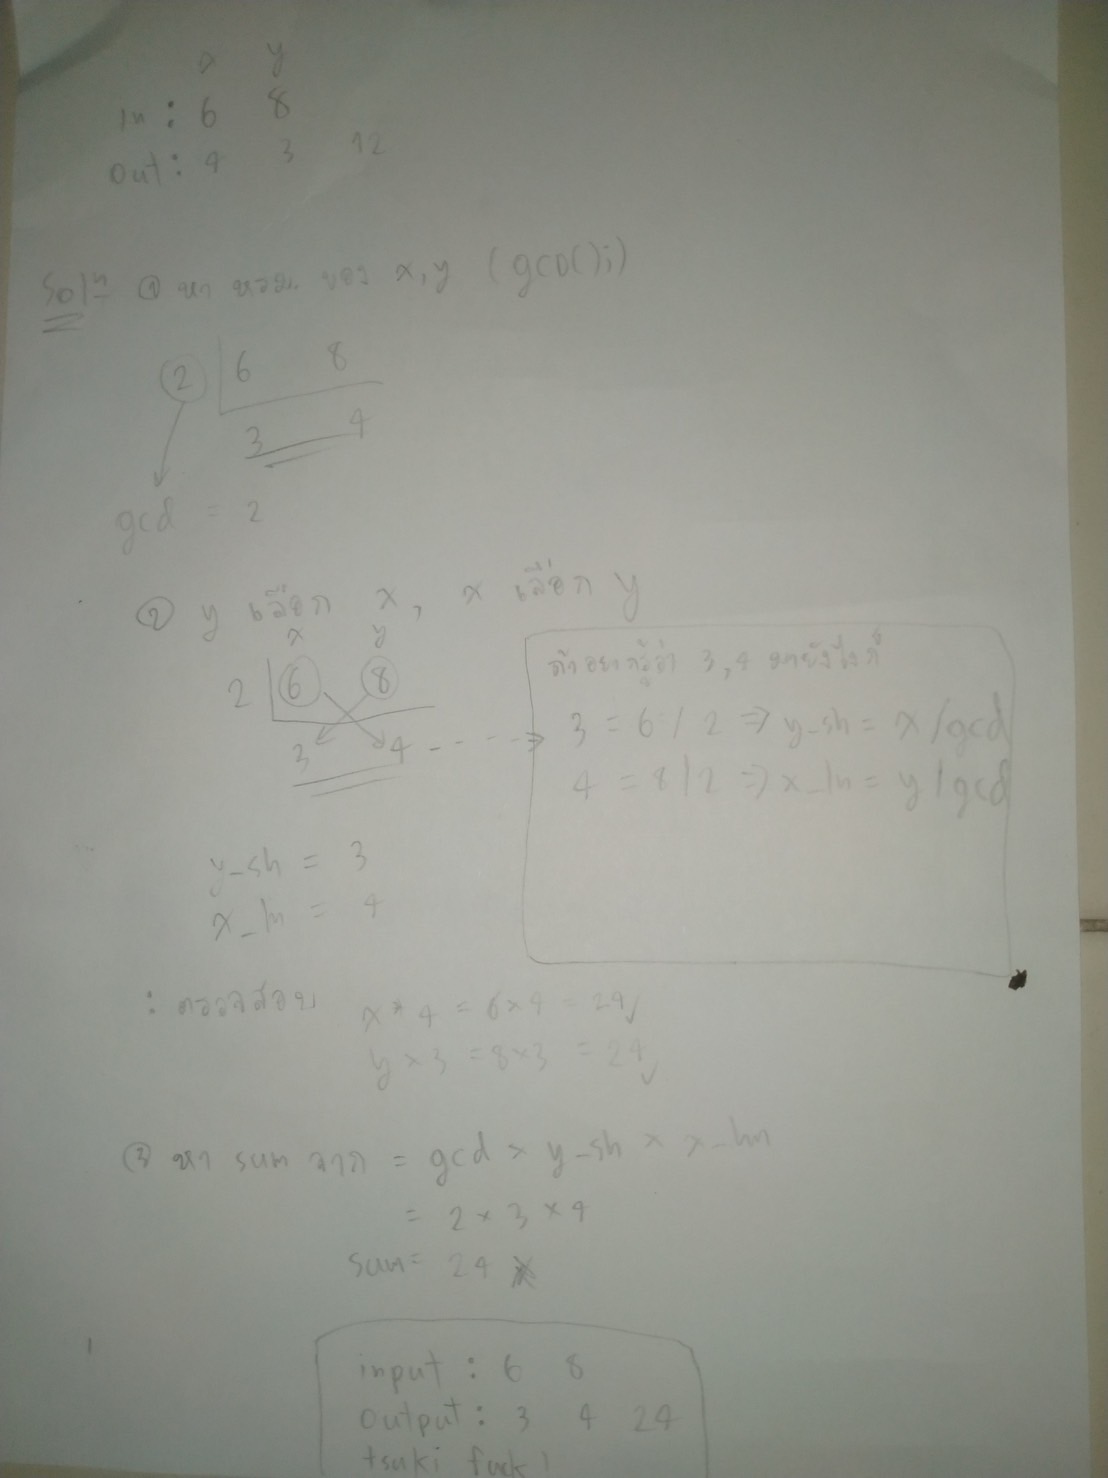 x y
In : 6 8
Out : 4 3 12
Solⁿ ① หา หรม. ของ x, y (gcd();)
2 6 8
3 4
gcd = 2
② y เลือก x, x เลือก y
x y
2 6 8
3 4
ถ้าอยากรู้ว่า 3, 4 มายังไงก็
3 = 6 / 2 => y_sh = x / gcd
4 = 8 / 2 => x_ln = y / gcd
y_sh = 3
x_ln = 4
: ตรวจสอบ x * 4 = 6 × 4 = 24 ✓
y × 3 = 8 × 3 = 24 ✓
③ หา sum จาก = gcd × y_sh × x_hn
= 2 × 3 × 4
sum = 24
input : 6 8
output : 3 4 24
tsuki fuck !